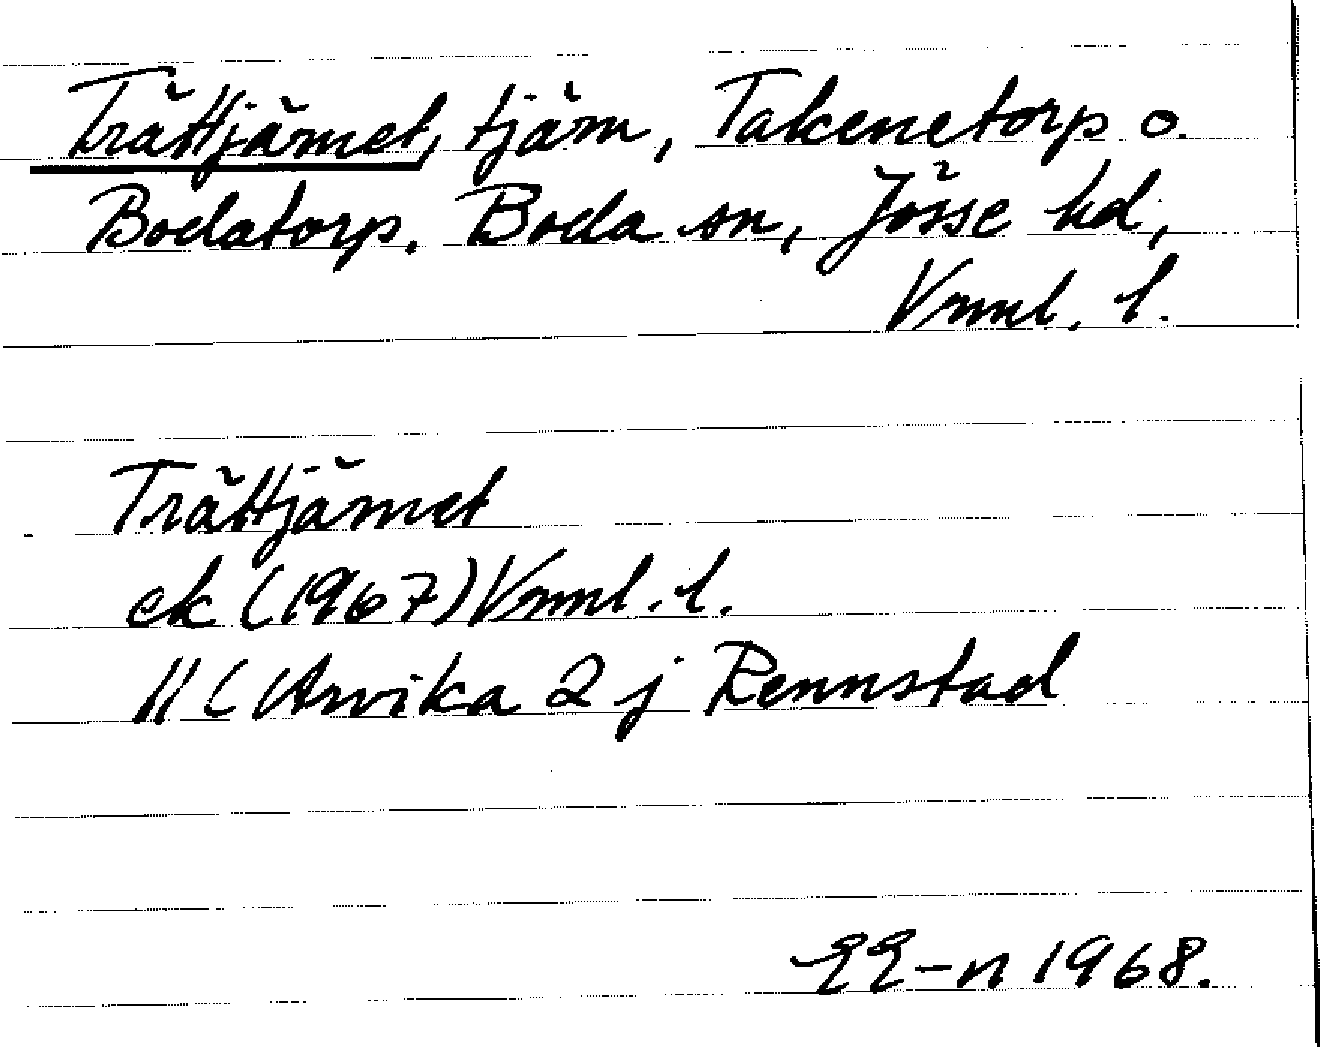 Trättjärnet, tjärn, Takenetorp o.
Bodatorp. Boda sn, Jösse hd,
Vrml. l.
Trättjärnet
ek (1967) Vrml. l.
11 C Arvika 2 j Rennstad
EE-n 1968.